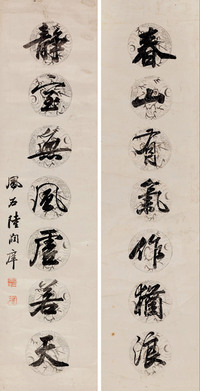 春山有氣作猶浪
靜室無風虛若天
鳳石陸潤庠